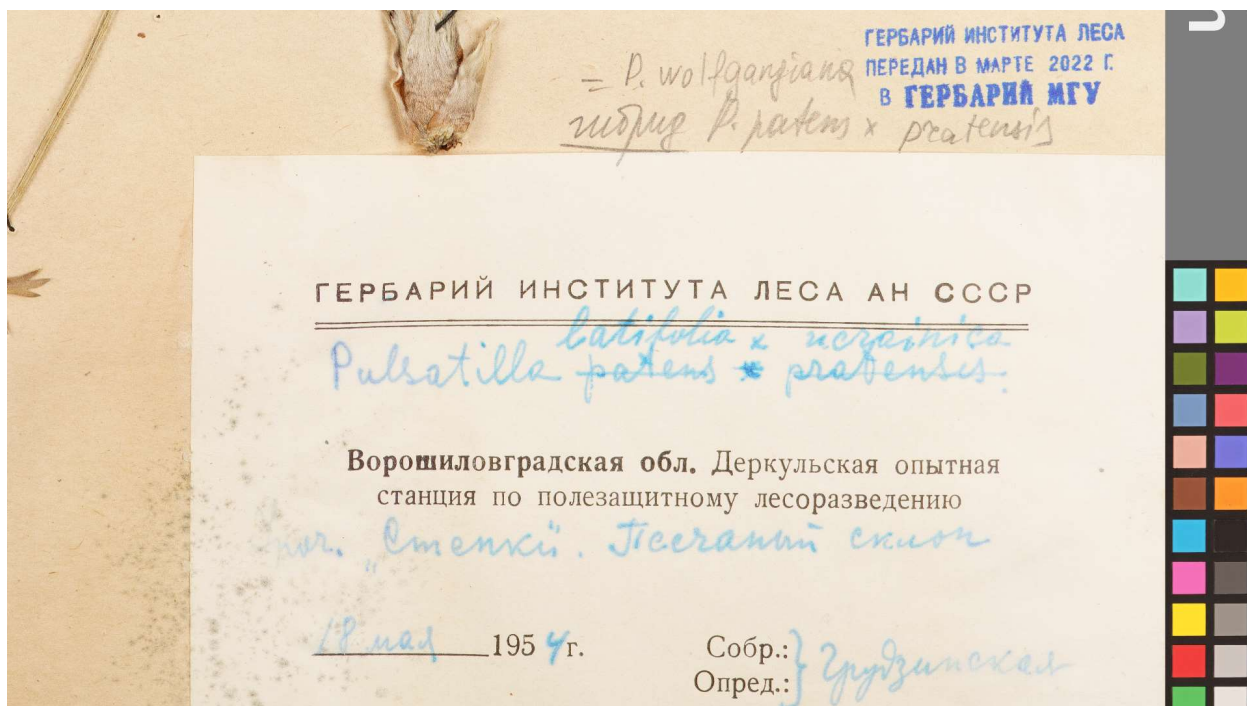 ГЕРБАРИЙ ИНСТИТУТА ЛЕСА
ПЕРЕДАН В МАРТЕ 2022 Г.
В ГЕРБАРИЙ МГУ
= P. wolfgangiana
гибрид P. patens x pratensis
ГЕРБАРИЙ ИНСТИТУТА ЛЕСА АН СССР
latifolia x ucrainica
Pulsatilla patens x pratensis.
Ворошиловградская обл. Деркульская опытная
станция по полезащитному лесоразведению
"Степки". Песчаный склон
18 мая 1954 г.
Собр.: } Грудзинская
Опред.: